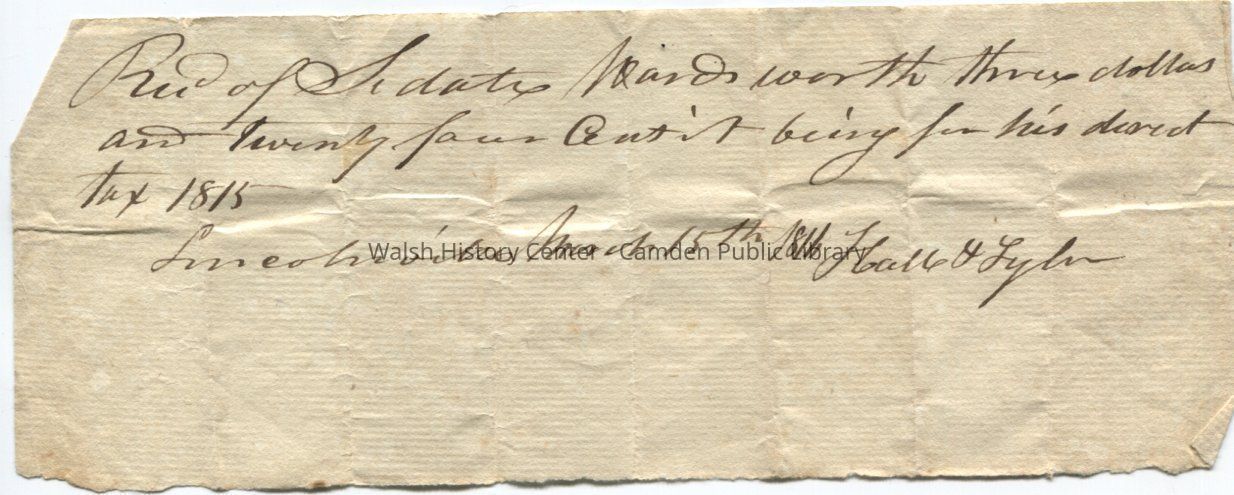 Recd of Sedate Wardsworth three dollars
and twenty four Cents it being for his direct
tax 1815
Lincolnville March 15th 1816 Hall & Tyler
Walsh History Center - Camden Public Library